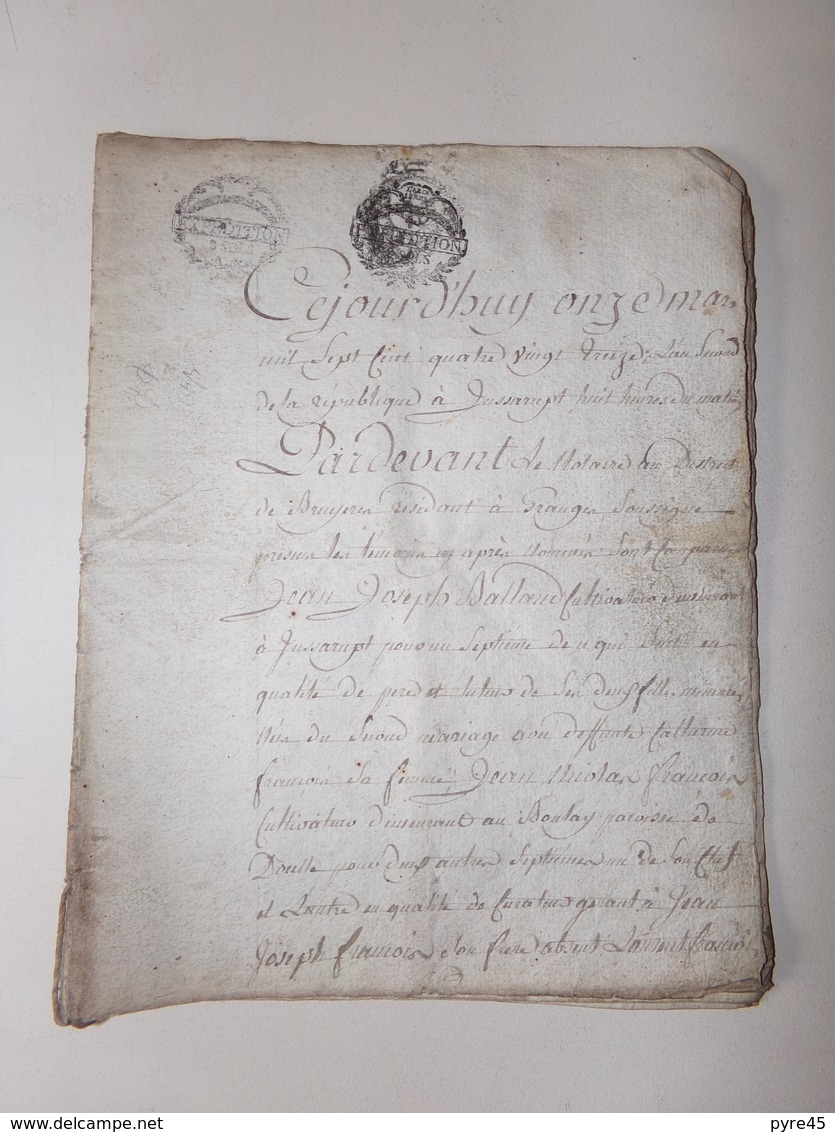 EXPEDITION
8 SOLS
EXPEDITION
SOLS
Cejourd'huy onze mars
mil Sept Cent quatre vingt treize, L'an Second
de la république à Jussarupt huit heures du matin
Pardevant Le Notaire au District
de Bruyeres résidant à Granges Soussigné
présens les témoins cy après nommés Sont Comparu
Jean Joseph Balland Cultivateur demeurant
à Jussarupt pour un Septieme de ce qui Suit en
qualité de pere et tuteur de Ses deux filles mineures
Nés du Second mariage avec deffunte Catherine
françois Sa femme, Jean Nicolas françois
Cultivateur demeurant au Boulay paroisse de
pour deux autres Septiemes un de Son Chef
et L'autre en qualité de Curateur gérant à Jean
Joseph françois Son frere absent Laurent
delcampe.net
pyre45